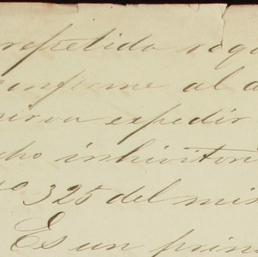 repetida requ
conforme al a
sirva expedir
cho inhivitori
no 325 del mis
Es un prin